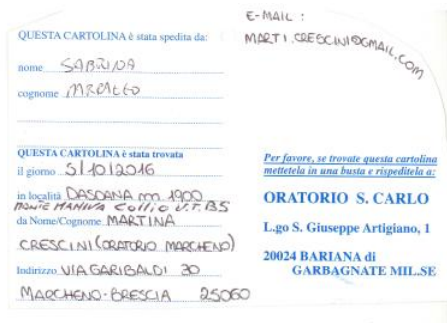 E-MAIL :
MARTI.CRESCINI@GMAIL.COM
QUESTA CARTOLINA è stata spedita da:
nome SABRINA
cognome
QUESTA CARTOLINA è stata trovata
il giorno 5/10/2016
in località DASDANA m 1900
MONTE MANIVA COLLIO V.T. BS
da Nome/Cognome MARTINA
CRESCINI (ORATORIO MARCHENO)
Indirizzo VIA GARIBALDI 30
MARCHENO-BRESCIA 25060
Per favore, se trovate questa cartolina
mettetela in una busta e rispeditela a:
ORATORIO S. CARLO
L.go S. Giuseppe Artigiano, 1
20024 BARIANA di
GARBAGNATE MIL.SE